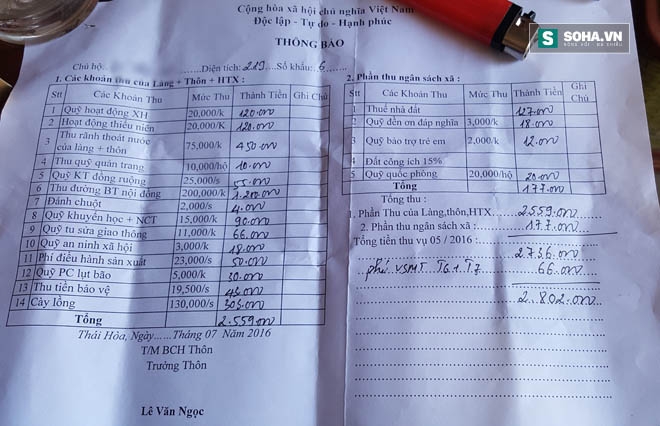 Cộng hòa xã hội chủ nghĩa Việt Nam
Độc lập - Tự do - Hạnh phúc
SOHA.VN
THÔNG BÁO
Chủ hộ: Diện tích: 219 Số khẩu: 6
1. Các khoản thu của Làng + Thôn + HTX :
Stt Các Khoản Thu Mức Thu Thành Tiền Ghi Chú
1 Quỹ hoạt động XH 20,000/k 120.000
2 Hoạt động thiếu niên 20,000/K 120.000
3 Thu rãnh thoát nước của làng + thôn 75,000/k 450.000
4 Thu quỹ quản trang 10,000/hộ 10.000
5 Quỹ KT đồng ruộng 25,000/s 55.000
6 Thu đường BT nội đồng 200,000/k 1.200.000
7 Đánh chuột 2,000/s 4.000
8 Quỹ khuyến học + NCT 15,000/k 90.000
9 Quỹ tu sửa giao thông 11,000/k 66.000
10 Quỹ an ninh xã hội 3,000/k 18.000
11 Phí điều hành sản xuất 23,000/s 50.000
12 Quỹ PC lụt bão 5,000/k 30.000
13 Thu tiền bảo vệ 19,500/s 43.000
14 Cây lồng 130,000/s 303.000
Tổng 2.559.000
Thái Hòa, Ngày......Tháng 07 năm 2016
T/M BCH Thôn
Trưởng Thôn
Lê Văn Ngọc
2. Phần thu ngân sách xã :
Stt Các Khoản Thu Mức Thu Thành Tiền Ghi Chú
1 Thuế nhà đất 127.000
2 Quỹ đền ơn đáp nghĩa 3,000/k 18.000
3 Quỹ bảo trợ trẻ em 2,000/k 12.000
4 Đất công ích 15%
5 Quỹ quốc phòng 20,000/hộ 20.000
Tổng 177.000
Tổng thu :
1. Phần Thu của Làng,thôn,HTX. 2559.000
2. Phần thu ngân sách xã : 177.000
Tổng tiền thu vụ 05 / 2016 : 2736.000
phí VSMT T6 1 T7 66.000
2.802.000